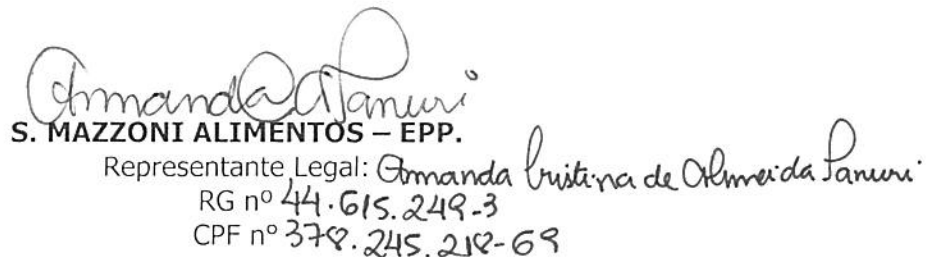 Amanda A Panuri
S. MAZZONI ALIMENTOS – EPP.
Representante Legal: Amanda Cristina de Almeida Panuri
RG nº 44.615.249-3
CPF nº 378.245.218-69